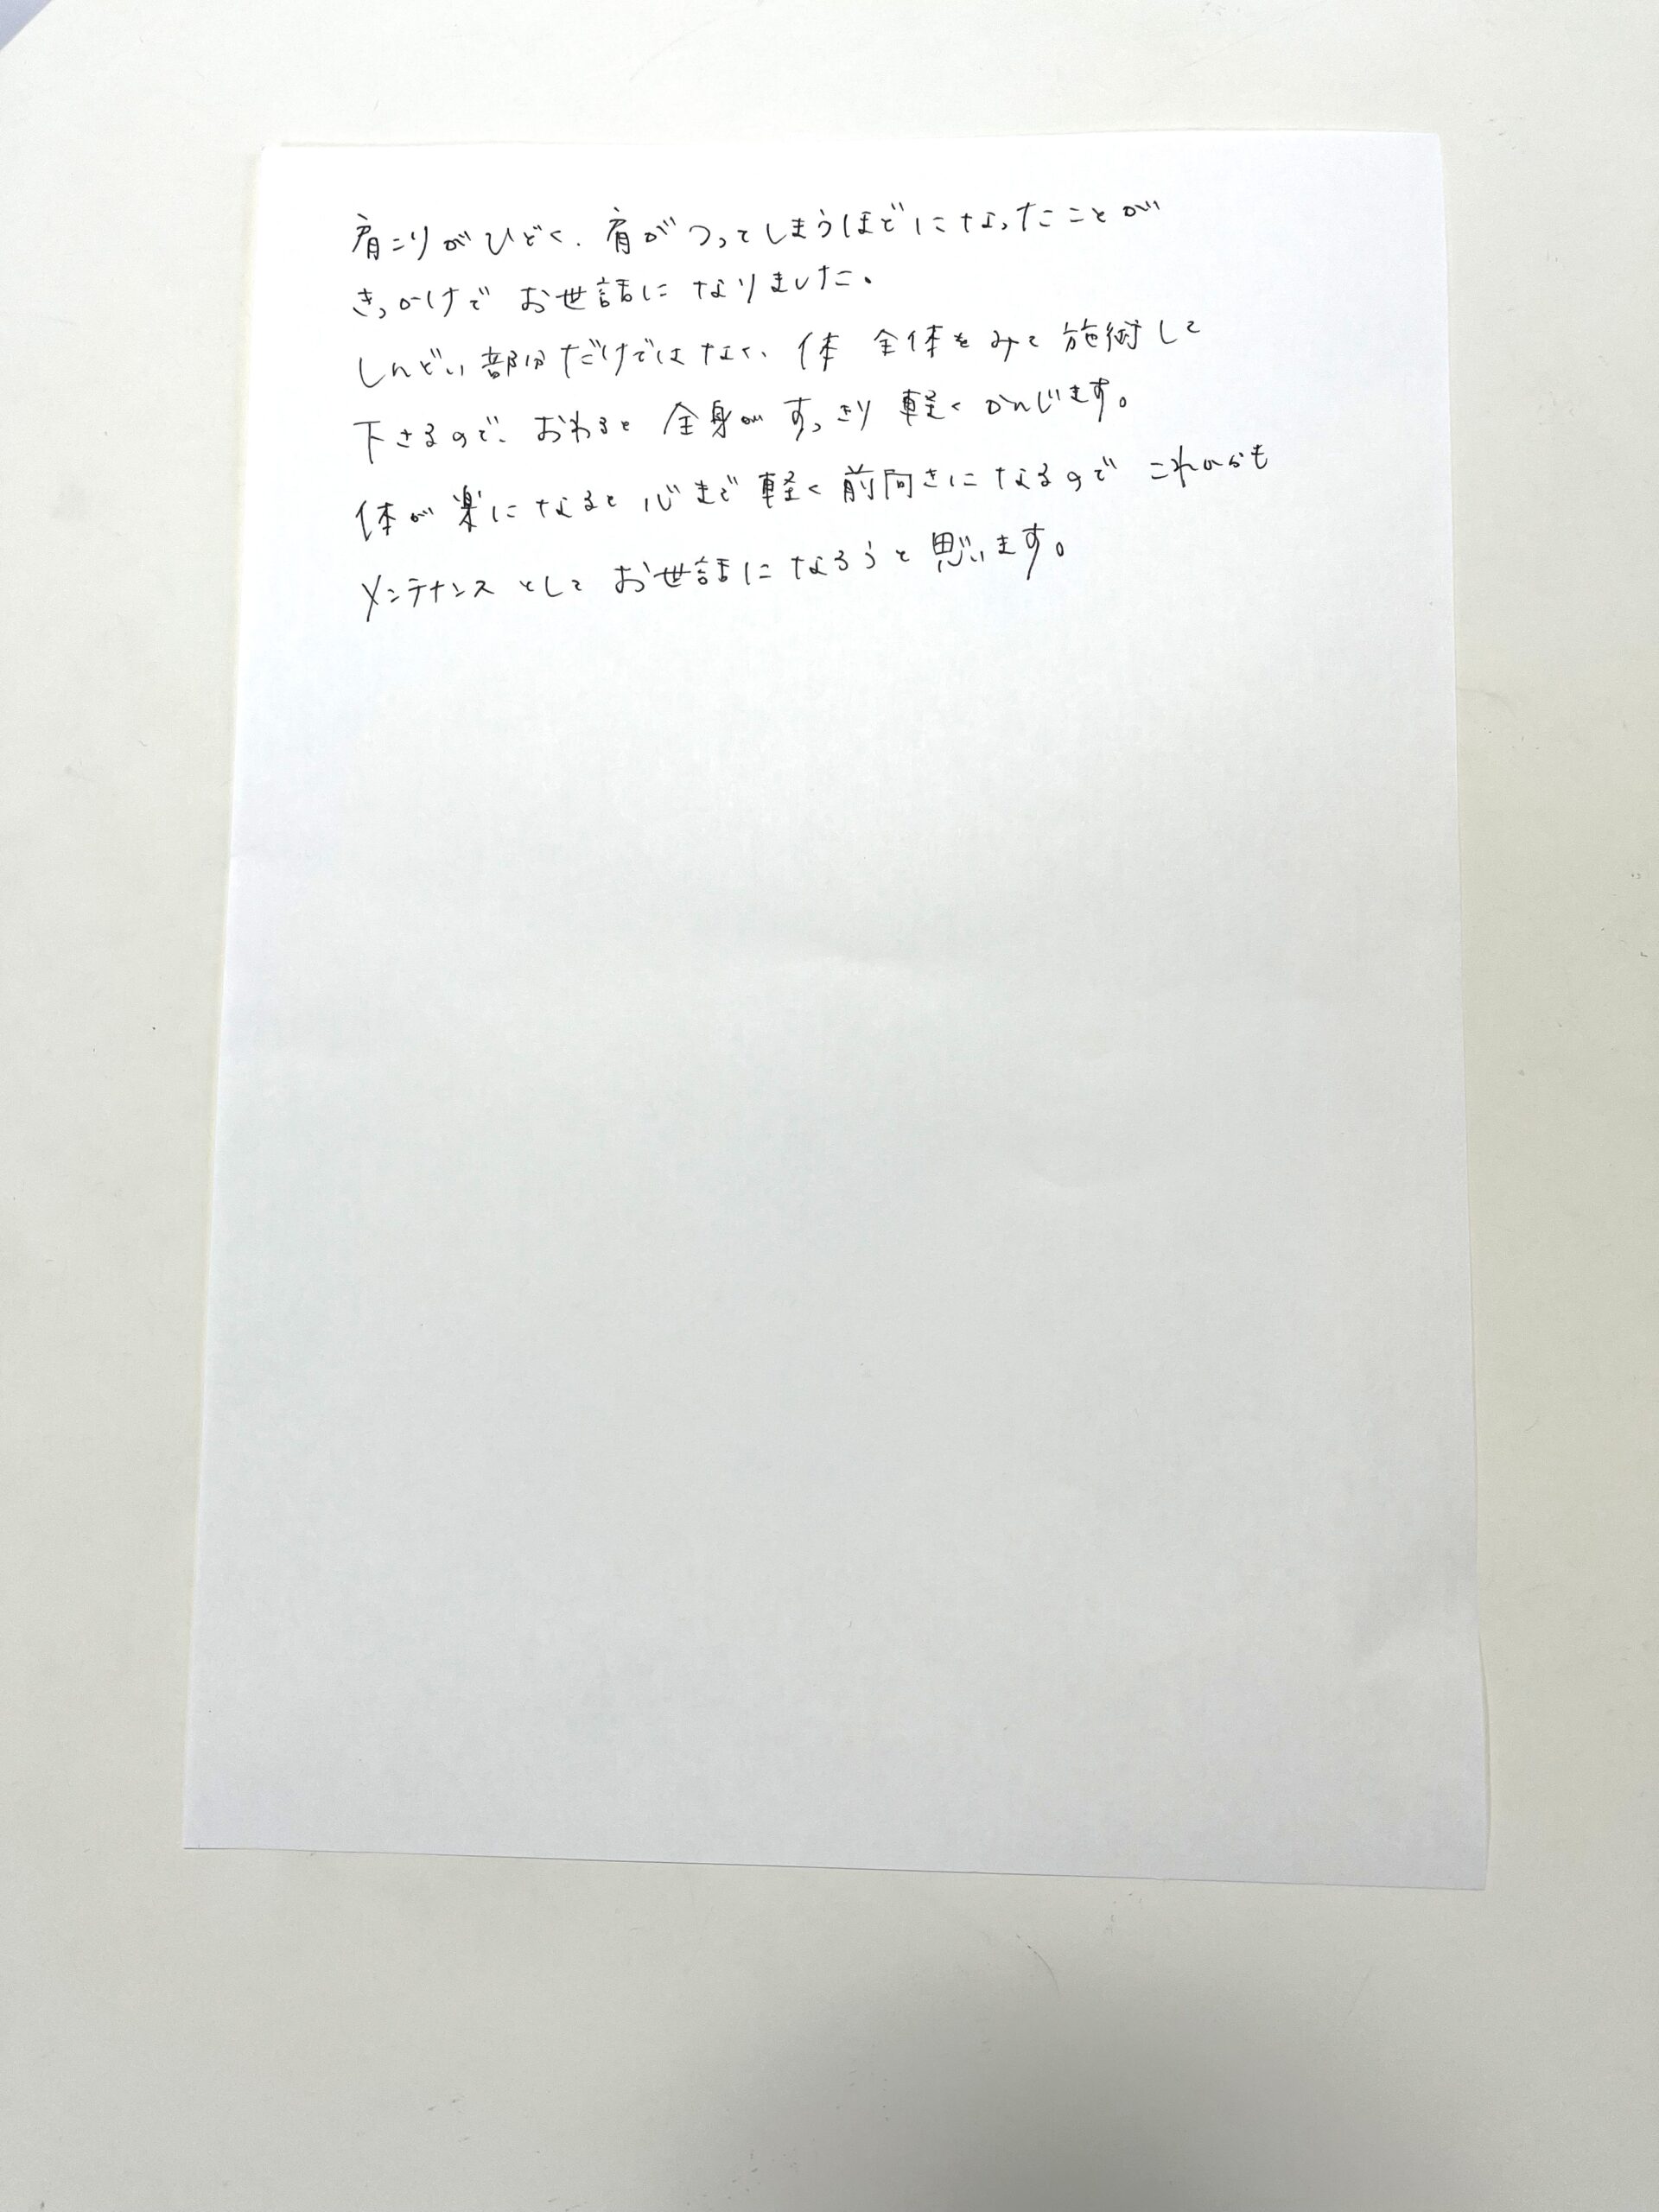 肩こりがひどく、肩がつってしまうほどになったことが
きっかけで お世話に なりました。
しんどい部分だけではなく、体 全体をみて 施術して
下さるので、おわると 全身が すっきり 軽く かんじます。
体が 楽に なると 心まで 軽く 前向きになるので これからも
メンテナンス として お世話に なろうと 思います。